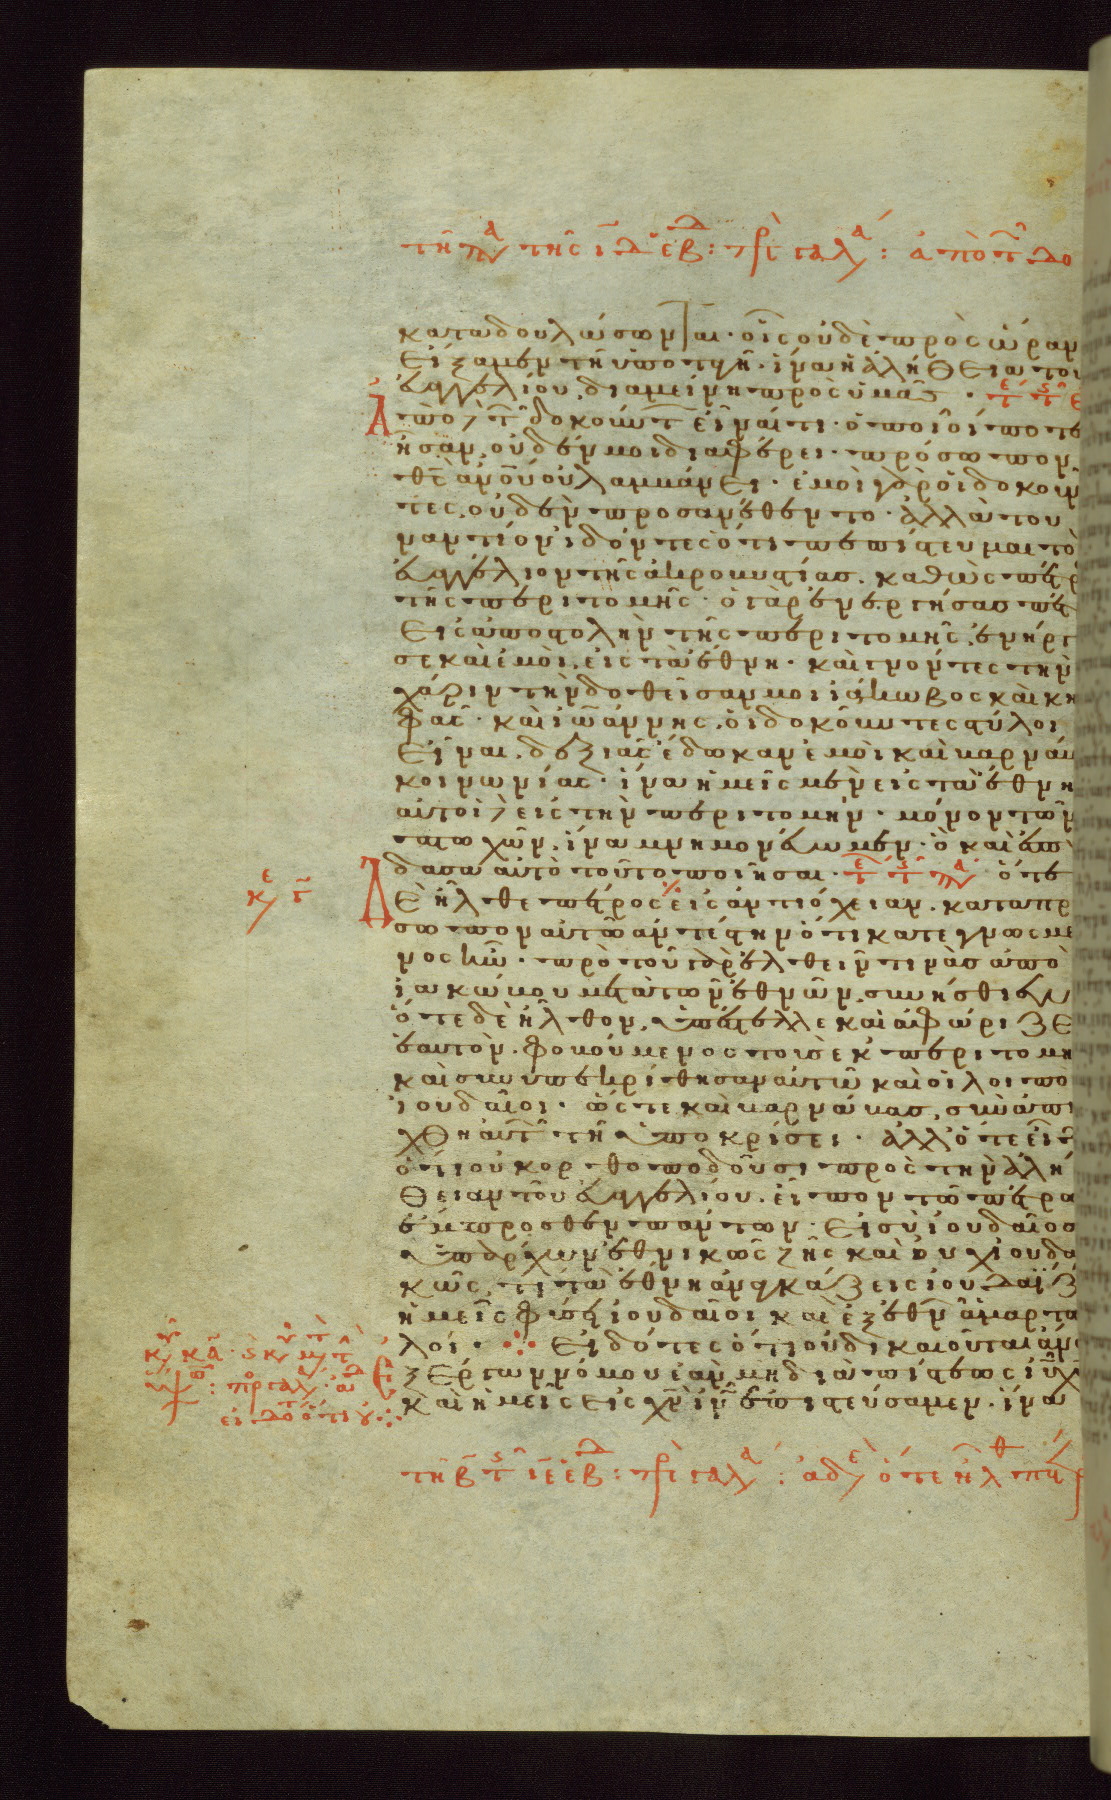 τῇ παρα τῆς ιδ εβδ : πρὸς γαλα : ἀπὸ τῶν δο
καταδουλώσωνται · οἷς οὐδὲ πρὸς ὥραν
εἴξαμεν τῇ ὑποταγῇ · ἵνα ἡ ἀλήθεια τοῦ
εὐαγγελίου διαμείνῃ πρὸς ὑμᾶς · τε τς
Ἀπὸ δὲ τῶν δοκούντων εἶναί τι · ὁποῖοί ποτε
ἦσαν, οὐδέν μοι διαφέρει · πρόσωπον
θς ἀνου οὐ λαμμάνει · ἐμοὶ γὰρ οἱ δοκοῦν
τες, οὐδὲν προσανέθεντο · ἀλλὰ του
ναντίον ἰδόντες ὅτι πεπίστευμαι τὸ
εὐαγγέλιον τῆς ἀκροβυστίας. καθὼς πετρ
τῆς περιτομῆς · ὁ γὰρ ἐνεργήσας πετ
εἰς ἀποστολὴν τῆς περιτομῆς, ἐνήργ
σε καὶ ἐμοὶ εἰς τὰ ἔθνη · καὶ γνόντες τὴν
χάριν τὴν δοθεῖσαν μοι ἰάκωβος καὶ κη
φᾶς · καὶ ἰωάννης, οἱ δοκοῦντες στύλοι
εἶναι. δεξιὰς ἔδωκαν ἐμοὶ καὶ βαρνάβ
κοινωνίας · ἵνα ἡμεῖς μὲν εἰς τὰ ἔθνη
αὐτοὶ δὲ εἰς τὴν περιτομήν · μόνον τῶν
πτωχῶν, ἵνα μνημονεύωμεν · ὃ καὶ ἐσπ
δασα αὐτὸ τοῦτο ποιῆσαι · τε τς παρα ὅτε
κε τ
Δὲ ἦλθε πετρος εἰς ἀντιόχειαν. κατα πρ
σωπον αὐτῶ ἀντέστην ὅτι κατεγνωσμε
νος ἦν · πρὸ τοῦ γὰρ ἐλθεῖν τινὰς ἀπὸ
ιακώβου μετὰ τῶν ἐθνῶν, συνήσθιεν
ὅτε δὲ ἦλθον, ὑπέστελλε καὶ ἀφώριζε
ἑαυτὸν. φοβούμενος τοὺς ἐκ περιτομη
καὶ συνυπεκρίθησαν αὐτῶ καὶ οἱ λοιποὶ
ἰουδαῖοι · ὥστε καὶ βαρνάβας, συναπή
χθη αὐτῶν τῇ ὑποκρίσει · ἀλλ ὅτε εἶδ
ὅτι οὐκ ορθοποδοῦσι πρὸς τὴν ἀλή
θειαν τοῦ εὐαγγελίου. εἶπον τῶ πετρω
ἔμπροσθεν πάντων · εἰ σὺ ἰουδαῖος
ὑπάρχων ἐθνικῶς ζῇς καὶ οὐχ ἰουδα
κῶς, τί τὰ ἔθνη ἀναγκάζεις ἰουδαΐζ
ἡμεῖς φύσει ἰουδαῖοι καὶ ἐξ ἐθνῶν ἁμαρτω
λοί · Εἰδότες ὅτι οὐ δικαιοῦται ἄνο
ξ ἔργων νόμου ἐὰν μὴ διὰ πίστεως ιυ χυ
καὶ ἡμεῖς εἰς χν ιν ἐπιστεύσαμεν · ἵνα
εἰδότες ὅτι οὐ
τῇ β τς ιε εβδ : πρὸς γαλα : ἀδε ὅτε ἦλθ πέτρ